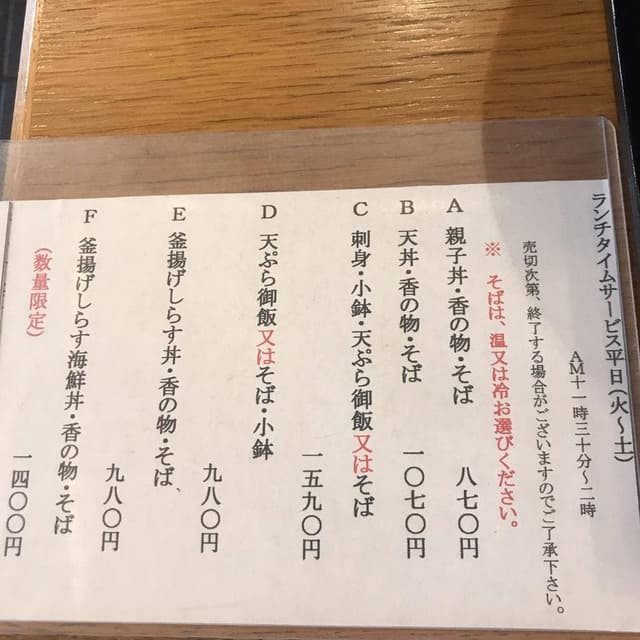 ランチタイムサービス平日(火〜土)
AM十一時三十分〜二時
売切次第、終了する場合がございますのでご了承下さい。
※ そばは、温又は冷お選びください。
A 親子丼・香の物・そば 八七〇円
B 天丼・香の物・そば 一〇七〇円
C 刺身・小鉢・天ぷら御飯又はそば 一五九〇円
D 天ぷら御飯又はそば・小鉢 九八〇円
E 釜揚げしらす丼・香の物・そば、 九八〇円
F 釜揚げしらす海鮮丼・香の物・そば 一四〇〇円
(数量限定)